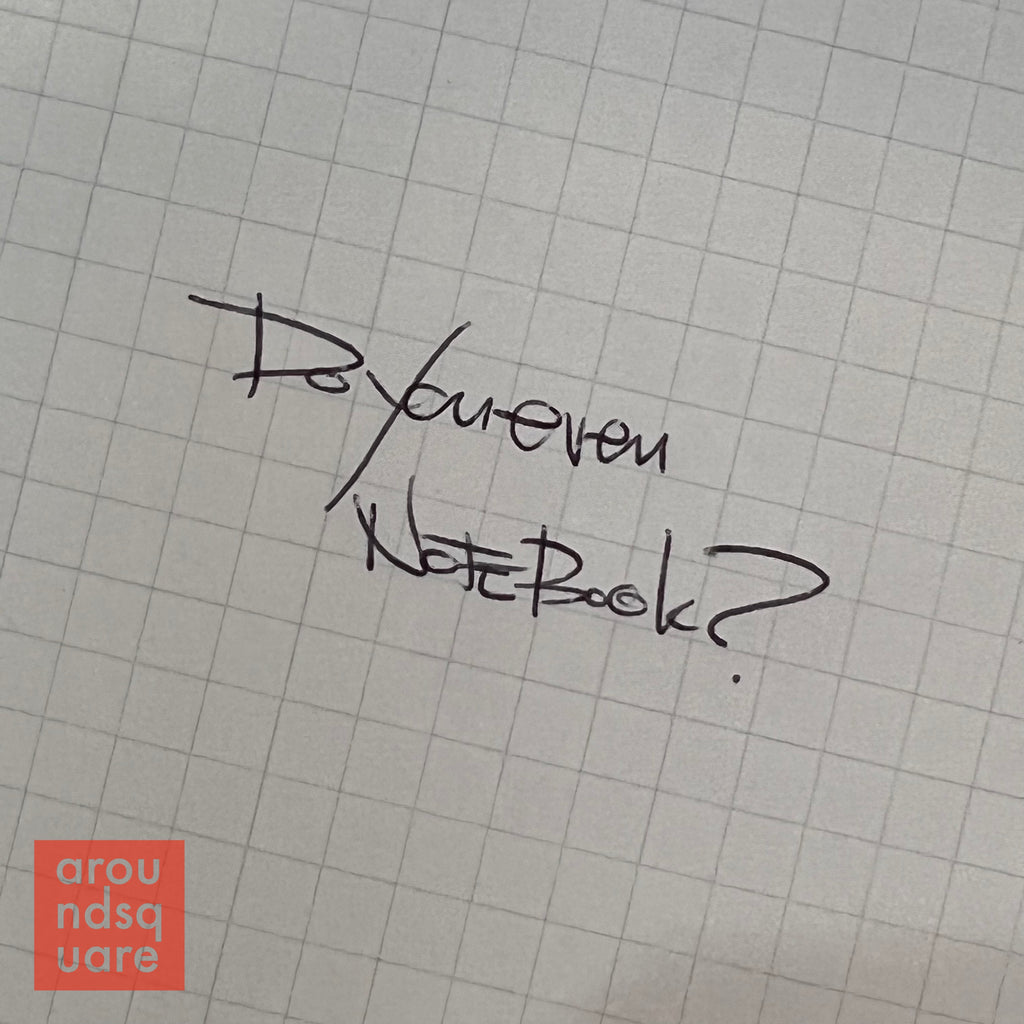 Do you even
NoteBook?
arou
ndsq
uare